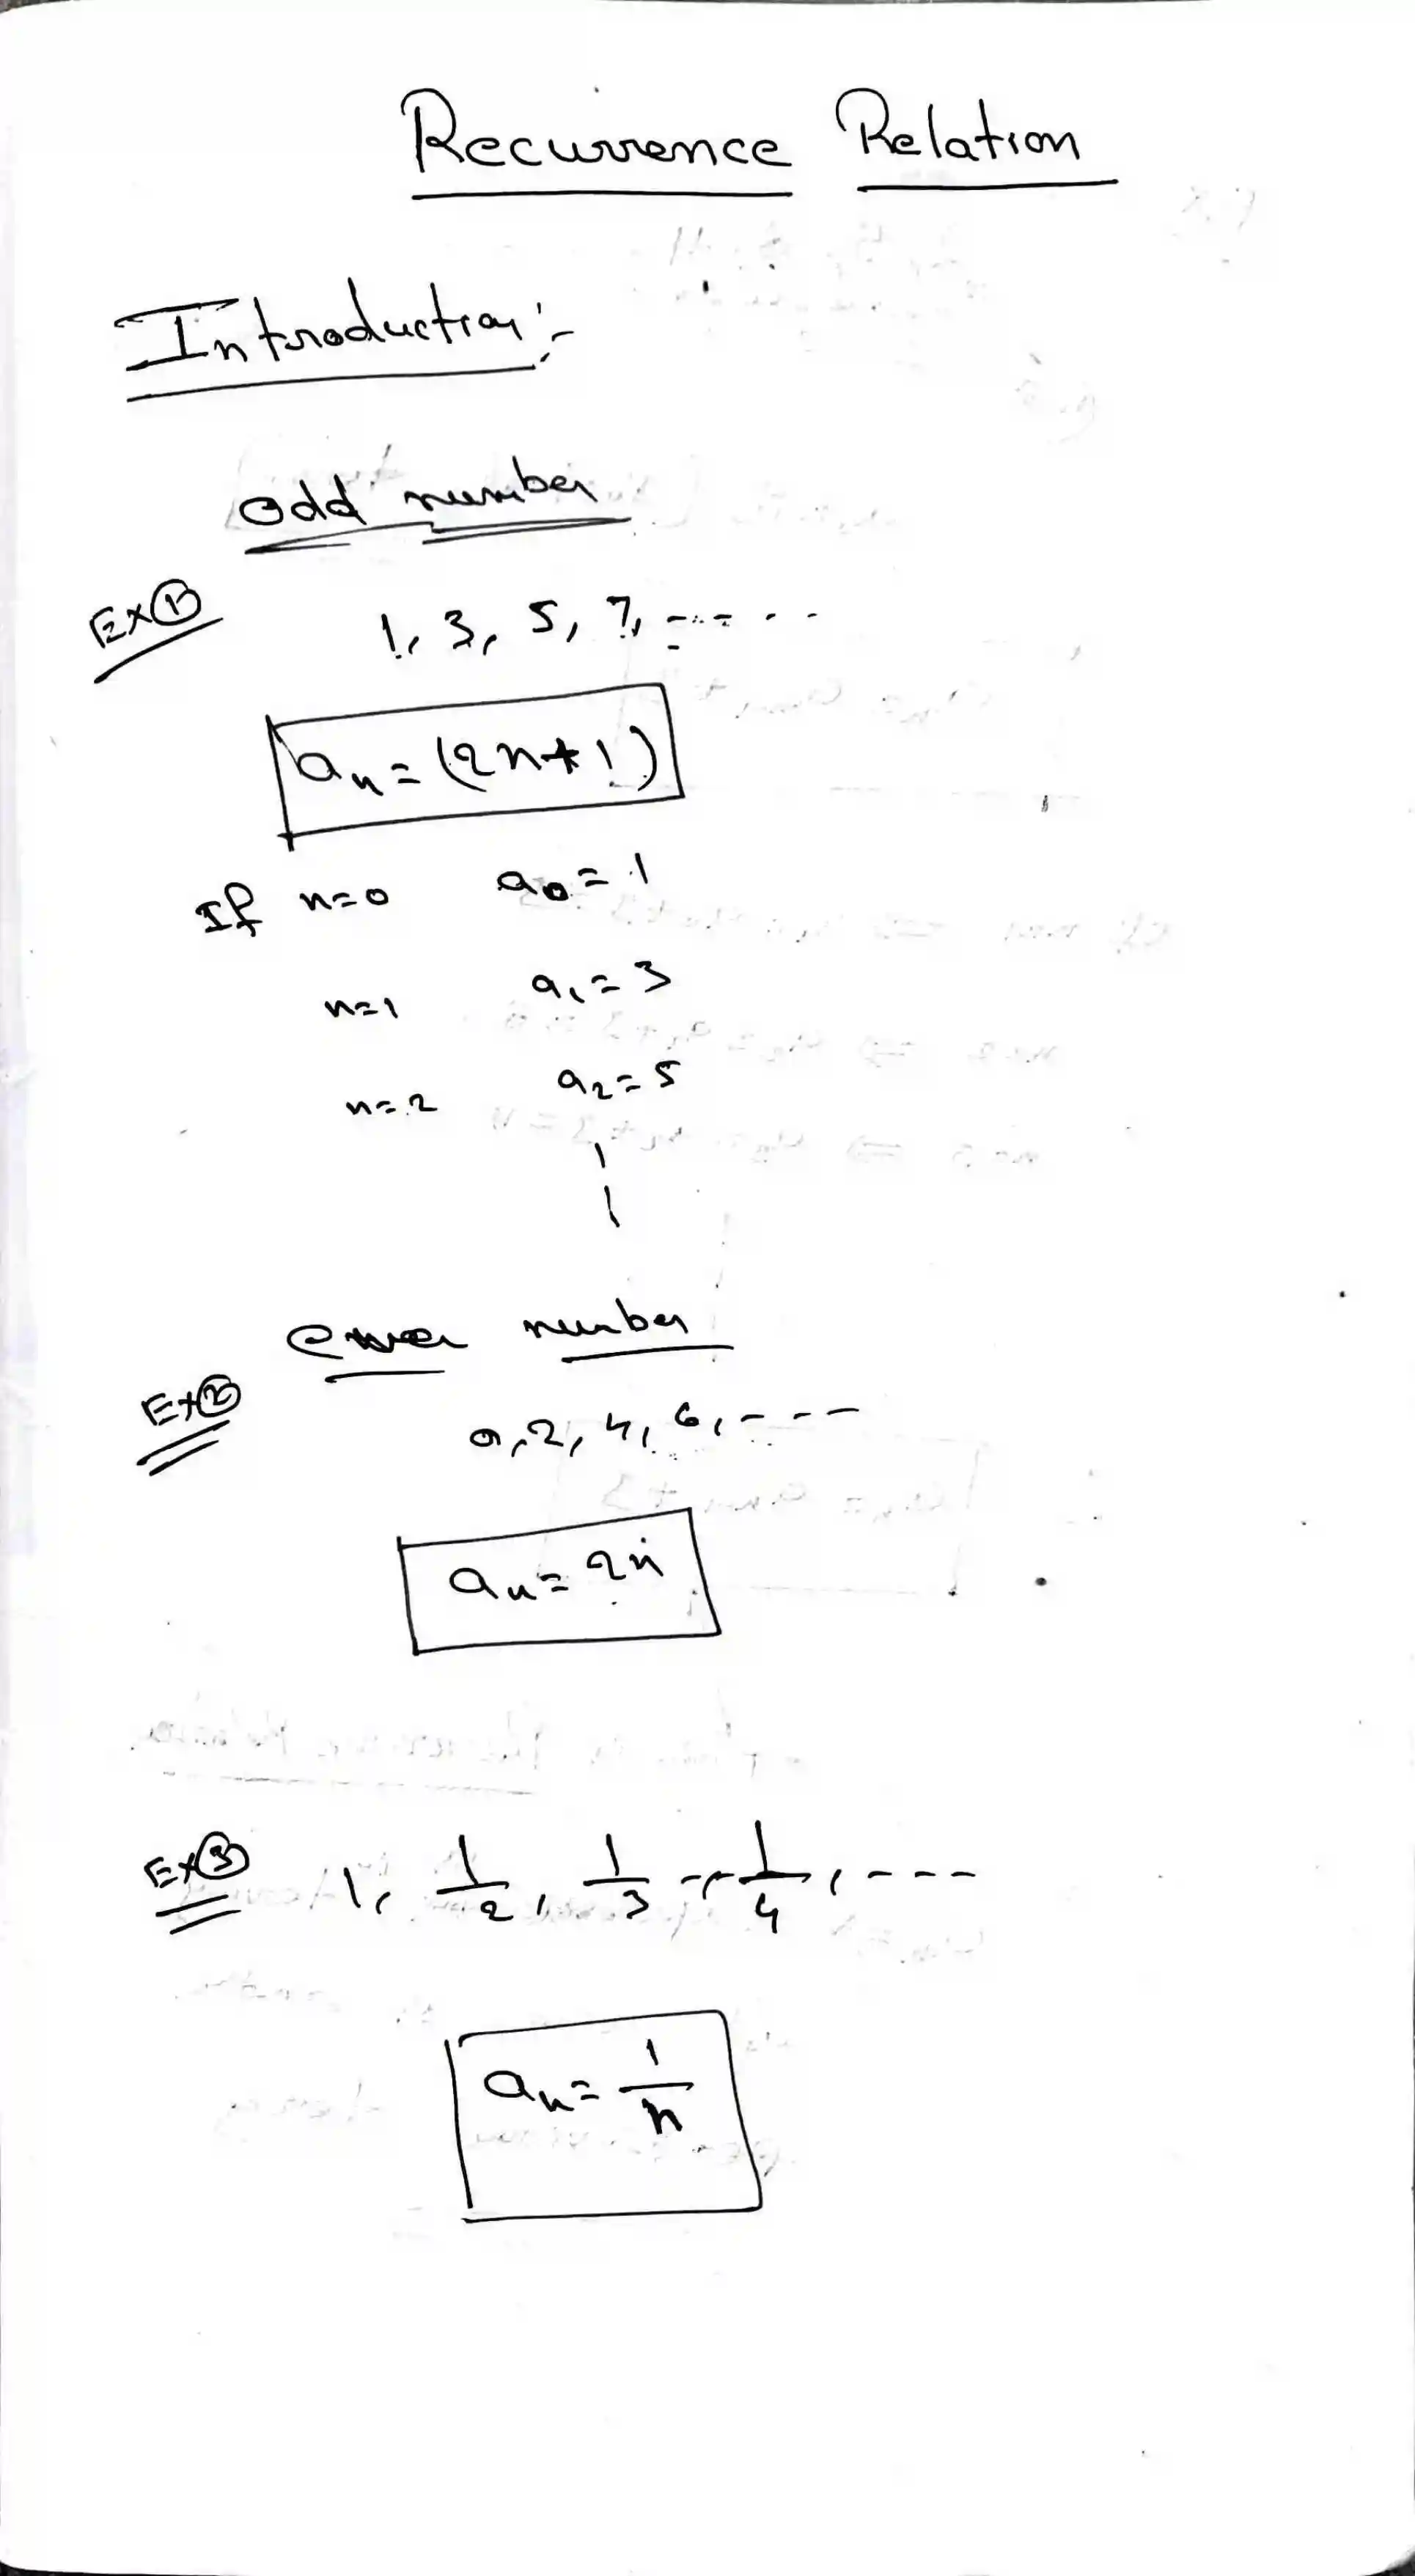 Recurrence Relation
Introduction:-
odd number
Ex①
1, 3, 5, 7, - - - - -
aₙ = (2n+1)
If n=0 a₀ = 1
n=1 a₁ = 3
n=2 a₂ = 5
even number
Ex②
0, 2, 4, 6, - - - -
aₙ = 2n
Ex③ 1, 1/2, 1/3 -, 1/4, - - - -
aₙ = 1/n